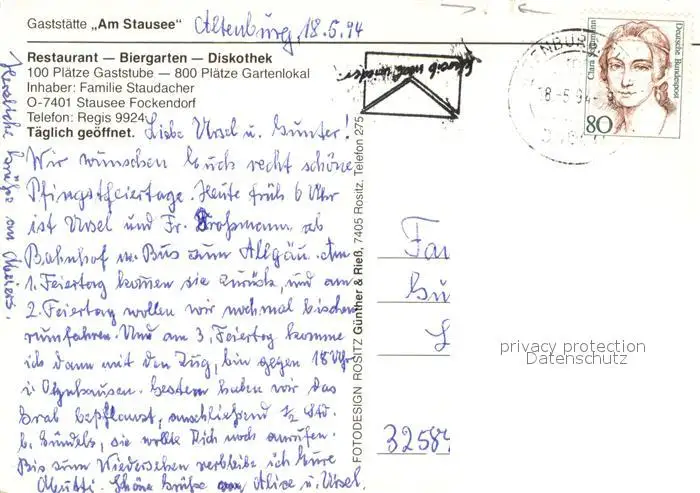 Gaststätte „Am Stausee"
Altenburg, 18.5.94
Restaurant — Biergarten — Diskothek
100 Plätze Gaststube — 800 Plätze Gartenlokal
Inhaber: Familie Staudacher
O-7401 Stausee Fockendorf
Telefon: Regis 9924
Täglich geöffnet.
Liebe Ursel u. Günter!
Wir wünschen Euch recht schöne
Pfingstfeiertage. Heute früh 6 Uhr
ist Ursel und Fr. Großmann ab
Bahnhof m. Bus zum Allgäu. Am
1. Feiertag kommen sie zurück, und am
2. Feiertag wollen wir nochmal bischen
rumfahren. Und am 3. Feiertag komme
ich dann mit den Zug, bin gegen 18 Uhr
i Oynhausen. Gestern haben wir das
Grab bepflanzt, anschließend ½ Std.
b. Gündels, sie wollte Dich noch anrufen.
Bis zum Wiedersehen verbleibe ich Eure
Mutti. Schöne Grüße von Alice u. Ursel.
Herzliche Grüße an Meiers.
FOTODESIGN ROSITZ Günther & Rieß, 7405 Rositz, Telefon 275
Schreib mal wieder
ENBUR
18-5.94-9
Clara Schumann
Deutsche Bundespost
80
Fa
Gü
L
3258
privacy protection
Datenschutz